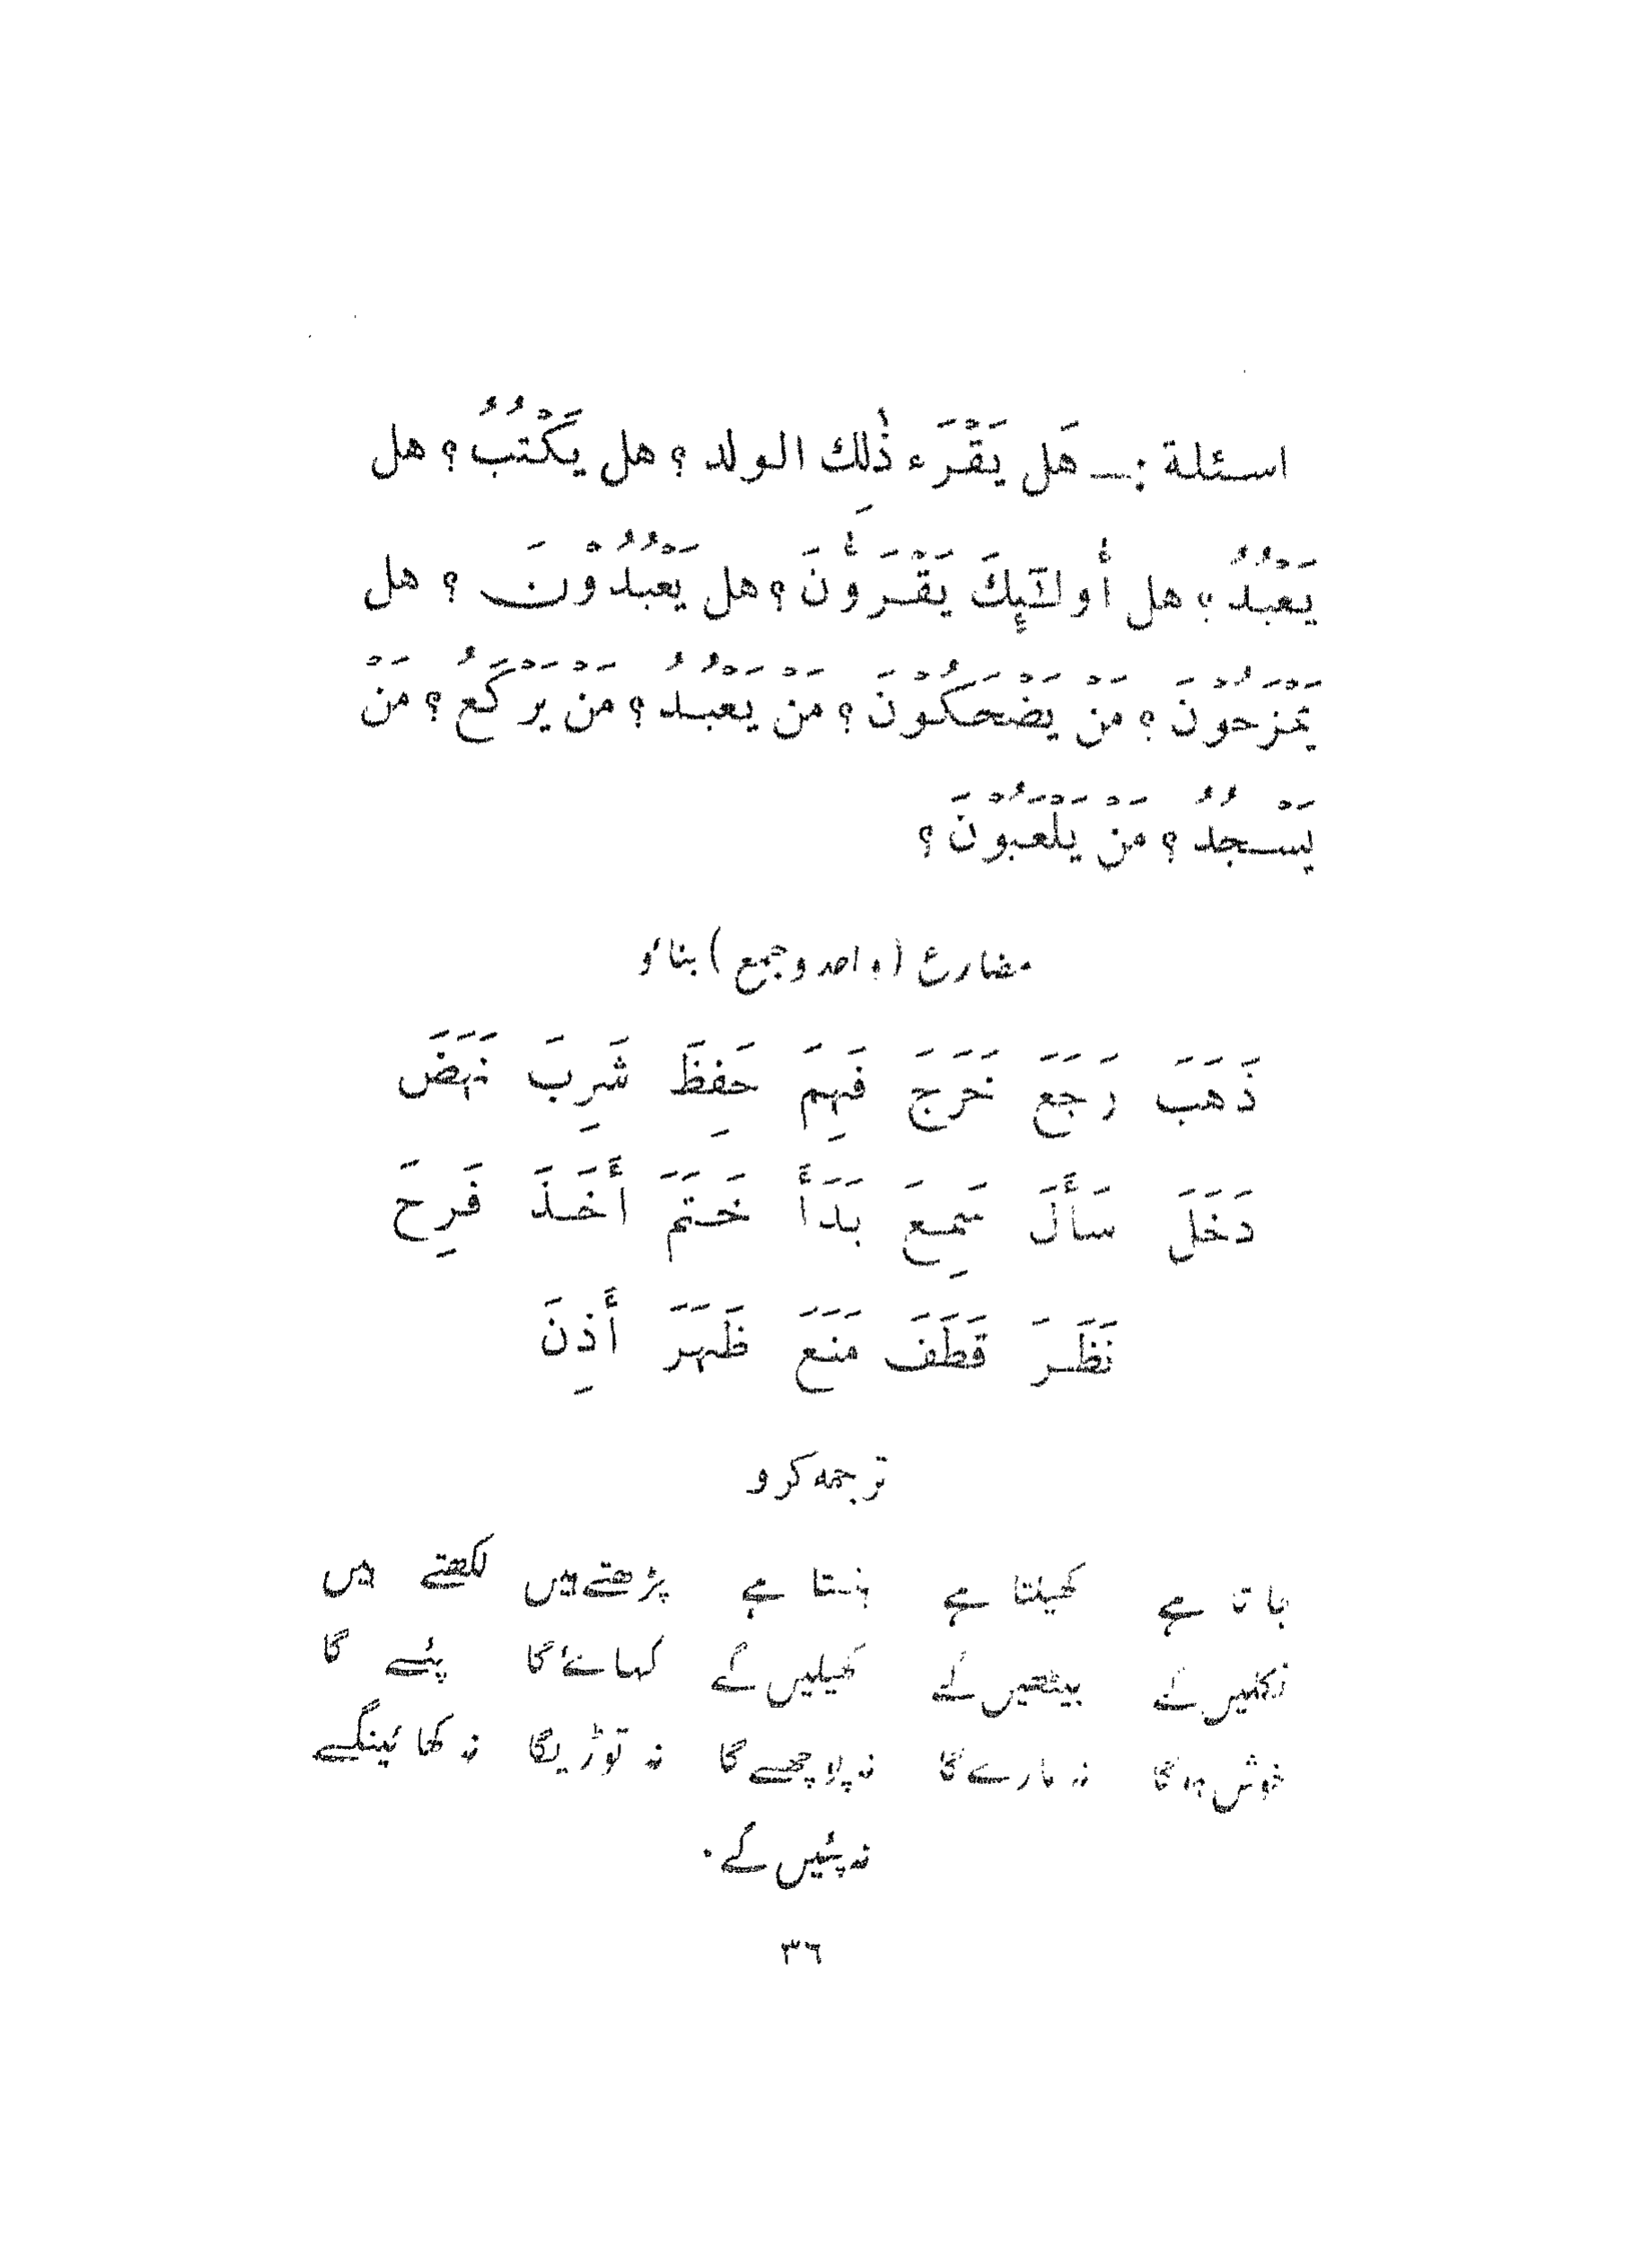 اسئلة :— هَل يَقْرَء ذٰلِكَ الولد ؟ هل يَكْتُبُ ؟ هل
يَعْبُدُ ؟ هل أُولٰٓئِكَ يَقْرَؤُنَ ؟ هل يَعْبُدُوْنَ ؟ هل
يَمْزَحُوْنَ ؟ مَنْ يَضْحَكُوْنَ ؟ مَنْ يَعْبُدُ ؟ مَنْ يَرْكَعُ ؟ مَنْ
يَسْجُدُ ؟ مَنْ يَلْعَبُوْنَ ؟
مضارع (واحد و جمع) بناؤ
ذَهَبَ رَجَعَ خَرَجَ فَهِمَ حَفِظَ شَرِبَ نَهَضَ
دَخَلَ سَأَلَ سَمِعَ بَدَأَ خَتَمَ أَخَذَ فَرِحَ
نَظَرَ قَطَفَ مَنَعَ ظَهَرَ أَذِنَ
ترجمہ کرو
جاتا ہے کھیلتا ہے ہنستا ہے پڑھتے ہیں لکھتے ہیں
نکلیں گے بیٹھیں گے کھیلیں گے کھائے گا پئے گا
خوش ہوگا نہ مارے گا نہ پوچھے گا نہ توڑیگا نہ کھائینگے
نہ پئیں گے۔
٣٦